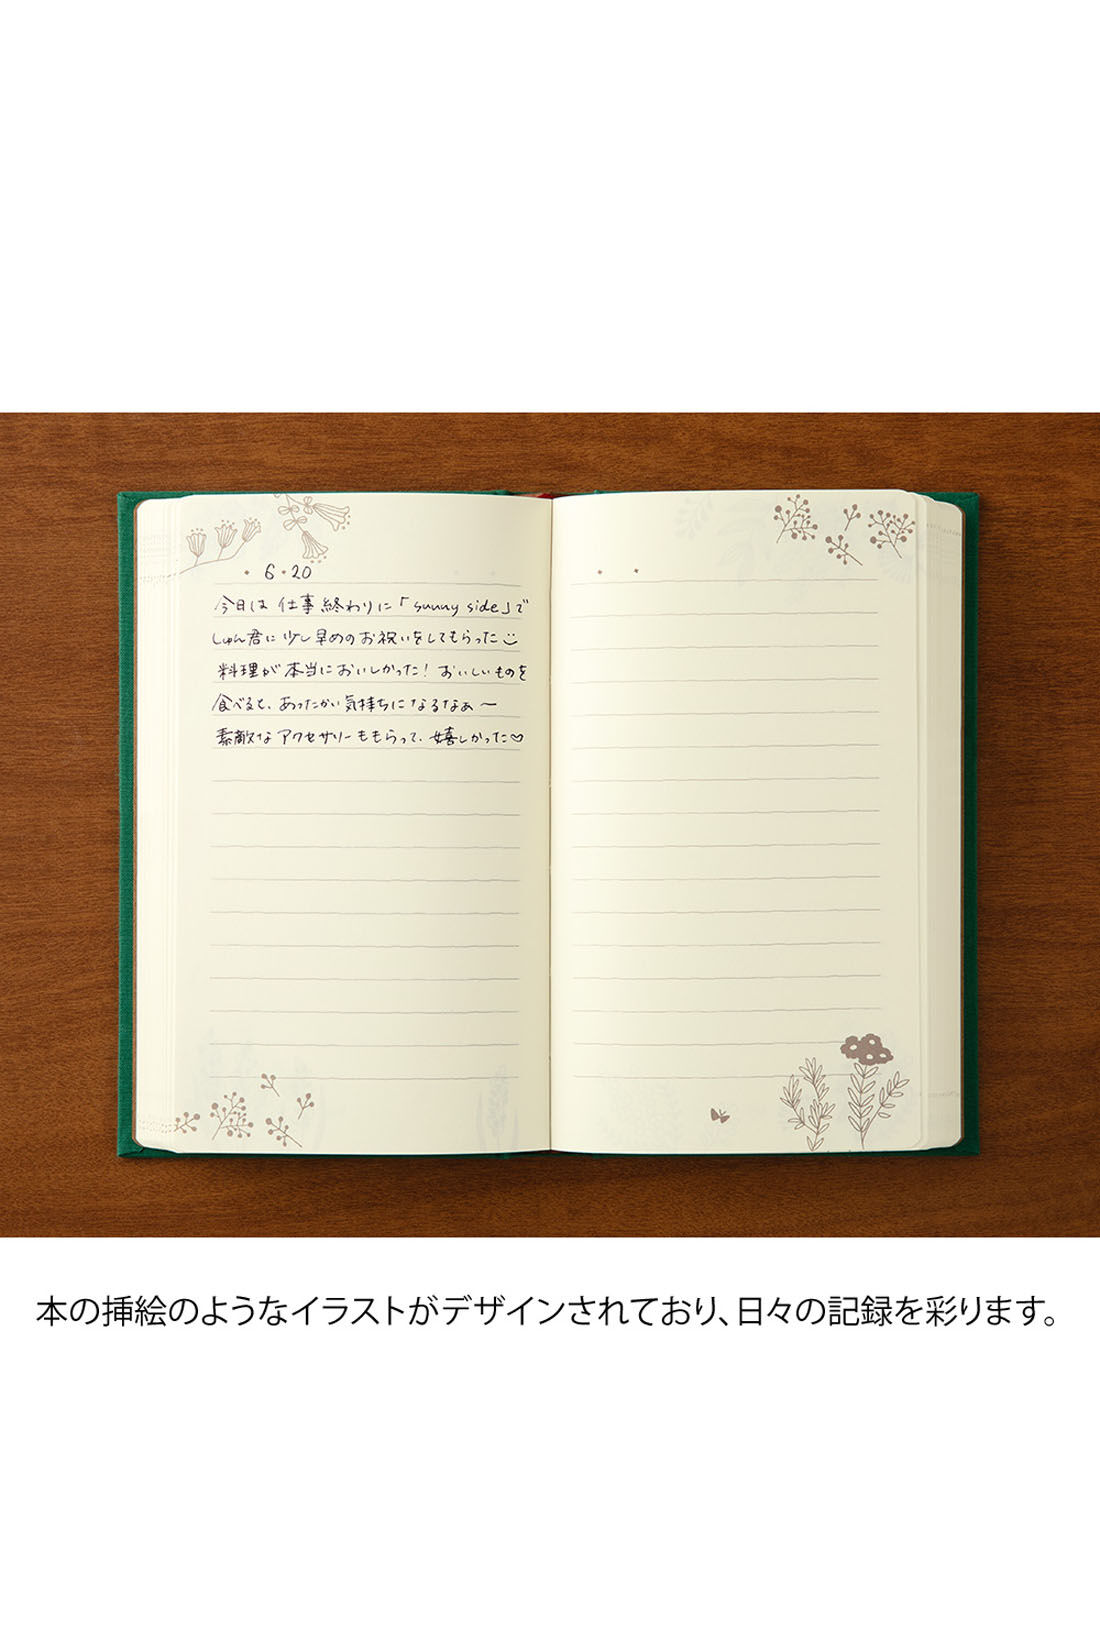 6・20
今日は仕事終わりに「sunny side」で
しゅん君に少し早めのお祝いをしてもらった
料理が本当においしかった！おいしいものを
食べると、あったかい気持ちになるなぁ〜
素敵なアクセサリーももらって、嬉しかった♡
本の挿絵のようなイラストがデザインされており、日々の記録を彩ります。